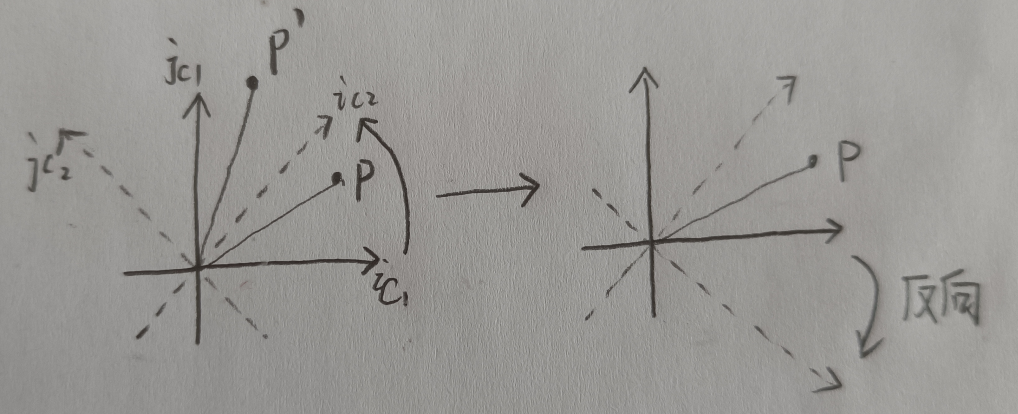 jc1
P'
ic2
jc2
P
ic1
P
反向